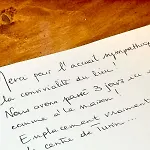 Merci pour l'accueil sympathique
la convivialité du lieu.
Nous avons passé 3 jours au
comme à la maison !
Emplacement vraiment
centre de Turin...